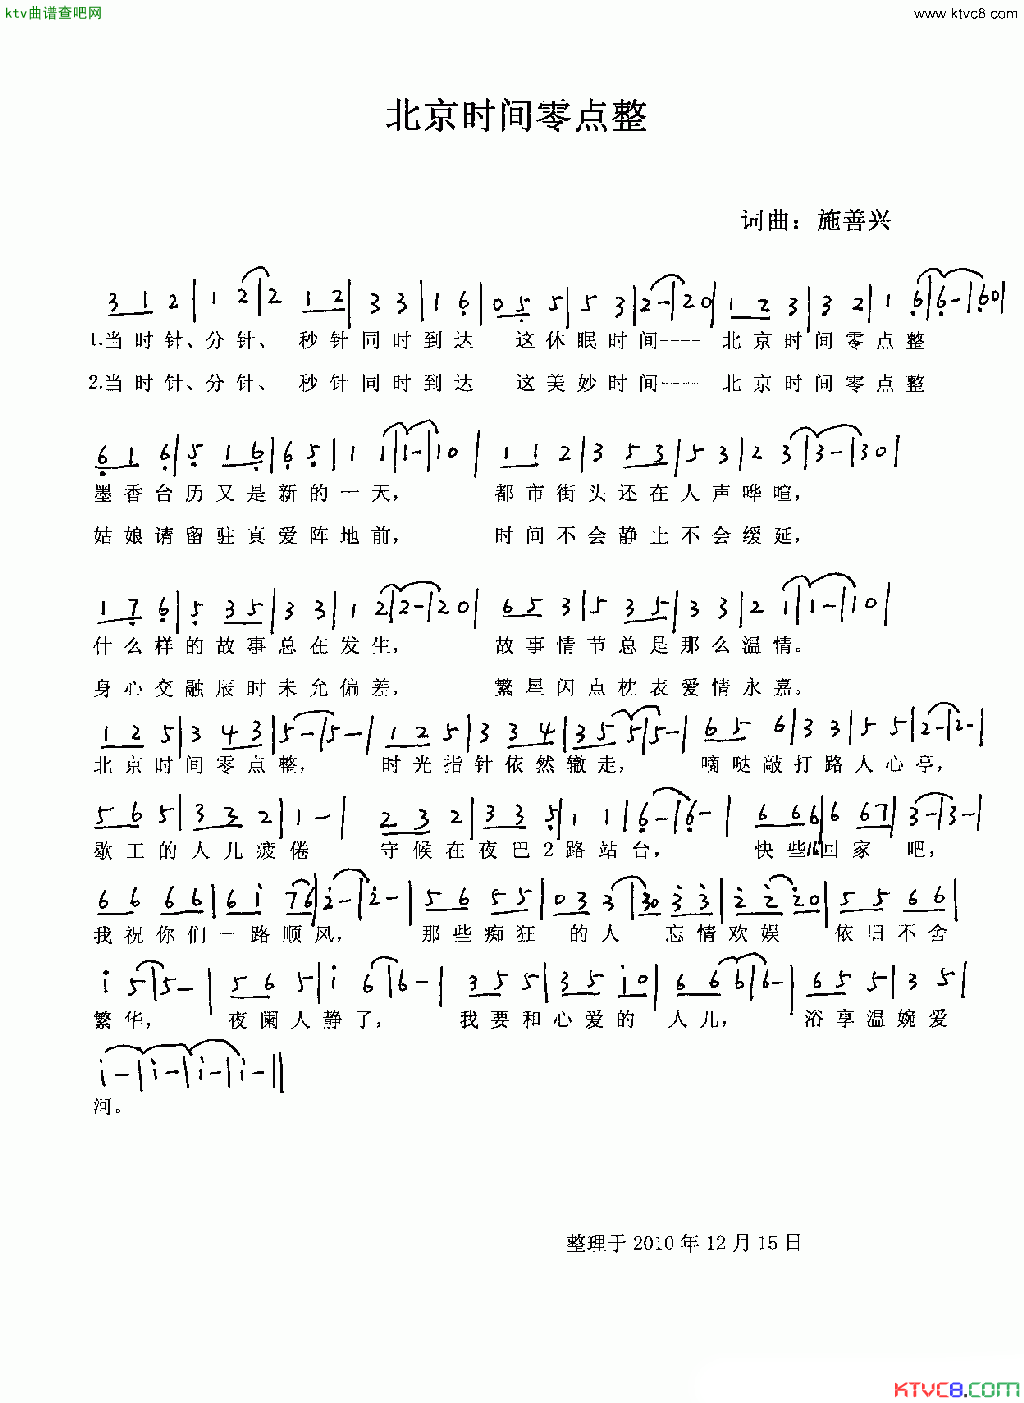 ktv曲谱查吧网
www.ktvc8.com
北京时间零点整
词曲：施善兴
3 1 2 | 1 2 | 2 1 2 | 3 3 | 1 6 | 0 5 5 | 5 3 | 2 - | 2 0 | 1 2 3 | 3 2 | 1 6 | 6 - | 6 0 |
1.当时针、分针、 秒针同时到达 这休眠时间---- 北京时间零点整
2.当时针、分针、 秒针同时到达 这美妙时间---- 北京时间零点整
6 1 6 | 5 1 6 | 6 5 | 1 1 | 1 - | 1 0 | 1 1 2 | 3 5 3 | 5 3 | 2 3 | 3 - | 3 0 |
墨香台历又是新的一天， 都市街头还在人声哗喧，
姑娘请留驻真爱阵地前， 时间不会静止不会缓延，
1 7 6 | 5 3 5 | 3 3 | 1 2 | 2 - | 2 0 | 6 5 3 | 5 3 5 | 3 3 | 2 1 | 1 - | 1 0 |
什么样的故事总在发生， 故事情节总是那么温情。
身心交融辰时未允偏差， 繁星闪点枕衣爱情永嘉。
1 2 5 | 3 4 3 | 5 - | 5 - | 1 2 5 | 3 3 4 | 3 5 5 | 5 - | 6 5 6 | 3 3 | 5 5 | 2 - | 2 - |
北京时间零点整， 时光指针依然辙走， 嘀哒敲打路人心亭，
5 6 5 | 3 3 2 | 1 - | 2 3 2 | 3 3 5 | 1 1 | 6 - | 6 - | 6 6 6 | 6 6 7 | 3 - | 3 - |
歌工的人儿疲倦 守候在夜巴2路站台， 快些儿回家 吧，
6 6 6 6 | 6 i 7 6 | i - | i - | 5 6 5 5 | 0 3 3 3 | 3 0 3 3 | 2 2 2 0 | 5 5 6 6 |
我祝你们一路顺风， 那些痴狂 的人 忘情欢娱 依旧不舍
i 5 | 5 - | 5 6 5 | i 6 | 6 - | 3 5 5 | 3 5 i 0 | 6 6 6 | 6 - | 6 5 5 | 3 5 |
繁华， 夜阑人静了， 我要和心爱的 人儿， 浴享温婉爱
i - | i - | i - | i - ||
河。
整理于 2010 年 12 月 15 日
KTVC8.COM